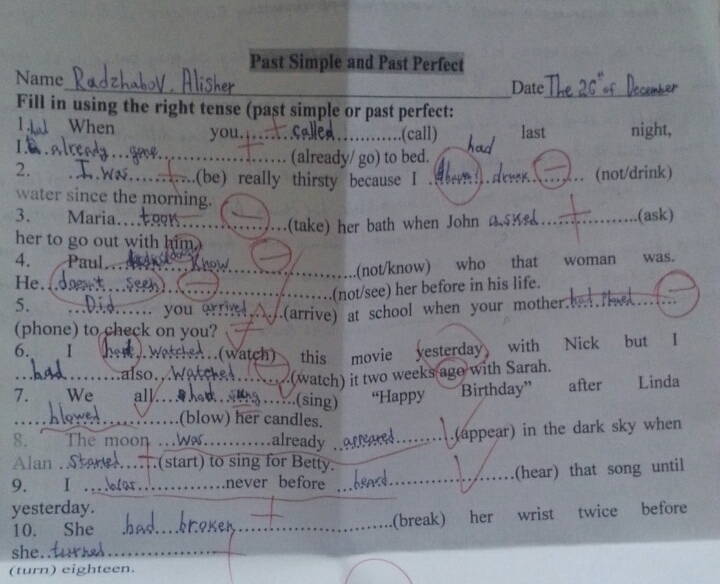 Past Simple and Past Perfect
Name Radzhabov, Alisher Date The 26th of December
Fill in using the right tense (past simple or past perfect:
1. had When you... called............(call) last night,
I... already...gone...................... (already/ go) to bed. had
2. ...I was............(be) really thirsty because I ... drunk............ (not/drink)
water since the morning.
3. Maria....took........................(take) her bath when John asked..................(ask)
her to go out with him.
4. Paul... know........................(not/know) who that woman was.
He...doesn't seen)..............................(not/see) her before in his life.
5. ...Did...... you arrived......(arrive) at school when your mother.had.phoned........
(phone) to check on you?
6. I had. watched...(watch) this movie yesterday, with Nick but I
...had.........also...watched............(watch) it two weeks ago with Sarah.
7. We all...had...sung............(sing) "Happy Birthday" after Linda
......blowed..............(blow) her candles.
8. The moon ...was............already ..appeared.........(appear) in the dark sky when
Alan .started......(start) to sing for Betty.
9. I ...was...............never before ...heard.....................(hear) that song until
yesterday.
10. She .had....broken............................(break) her wrist twice before
she..turned........................
(turn) eighteen.